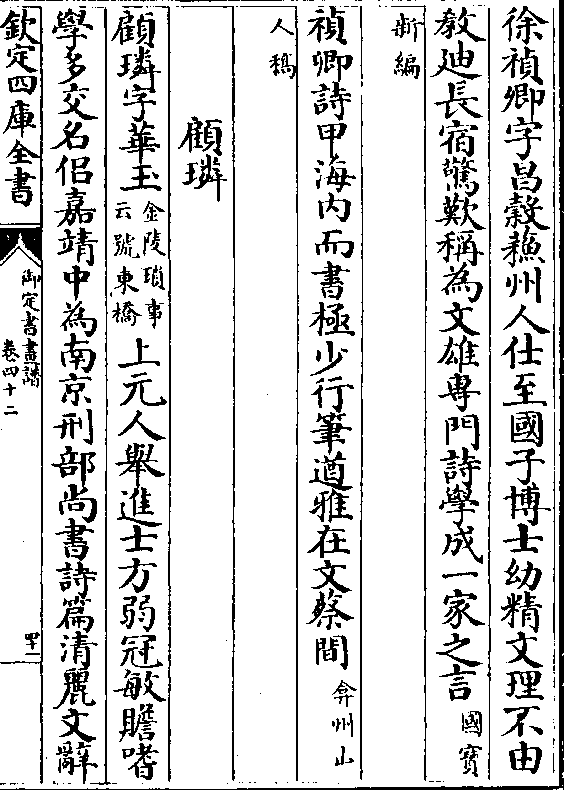 徐禎卿字昌穀蘓州人仕至國子博士幼精文理不由
教廸長宿驚歎稱為文雄專門詩學成一家之言國寳
新編
禎卿詩甲海内而書極少行筆遒雅在文蔡間弇州山
人稿
顧璘
顧璘字華玉金陵瑣事云號東橋上元人舉進士方弱冠敏贍嗜
學多交名侣嘉靖中為南京刑部尚書詩篇清麗文辭
欽定四庫全書
御定書畫譜
卷四十二